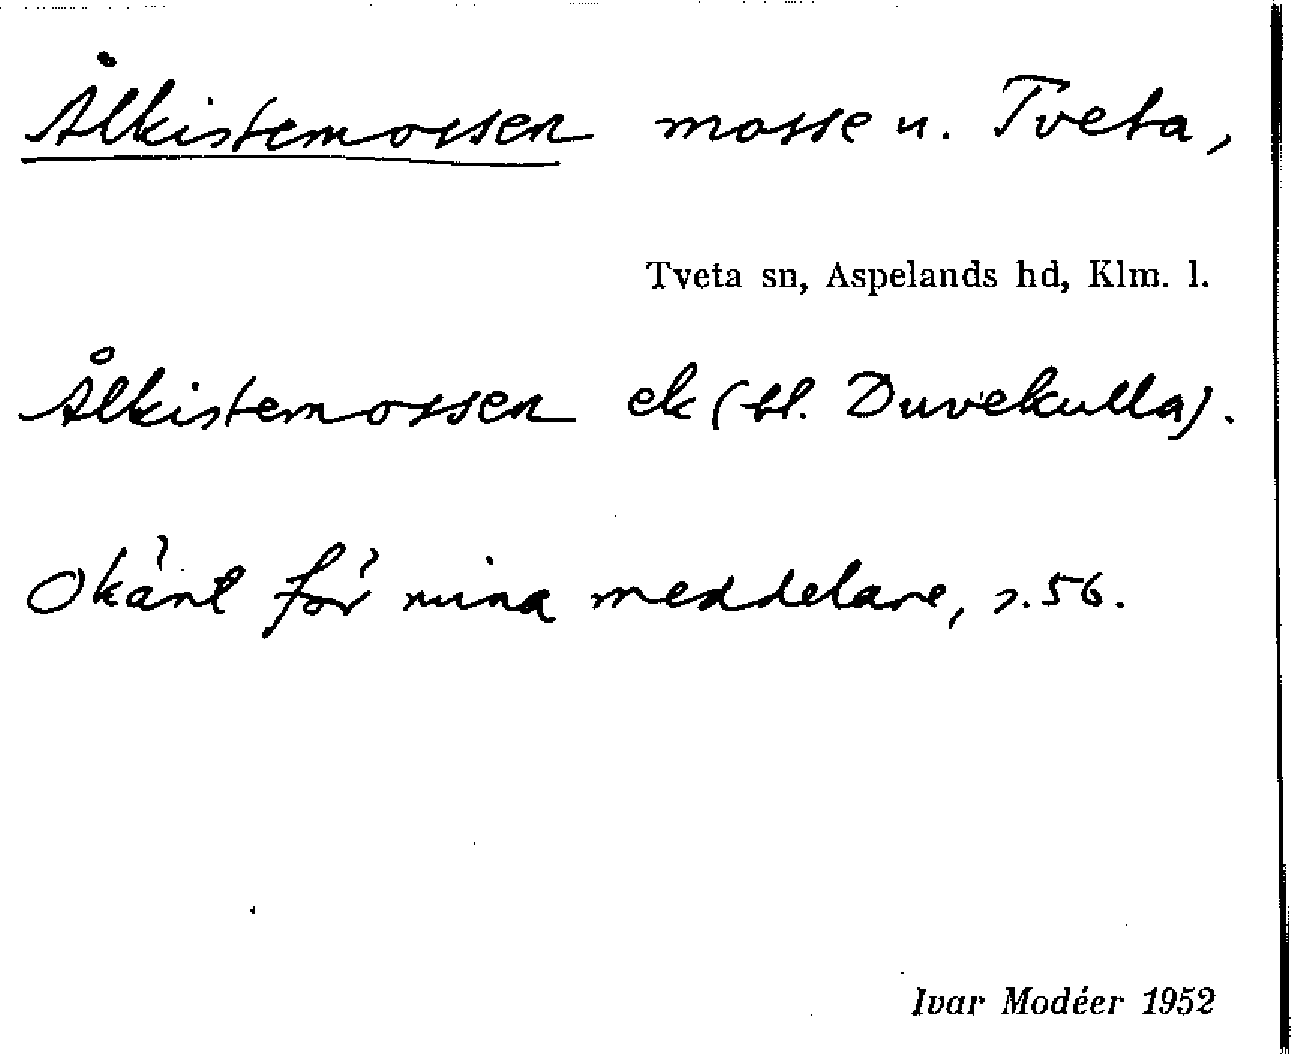 Ålkistemossen mosse u. Tveta,
Tveta sn, Aspelands hd, Klm. l.
Ålkistemossen ek (bl. Duvekulla).
Okänt för mina meddelare, s. 56.
Ivar Modéer 1952